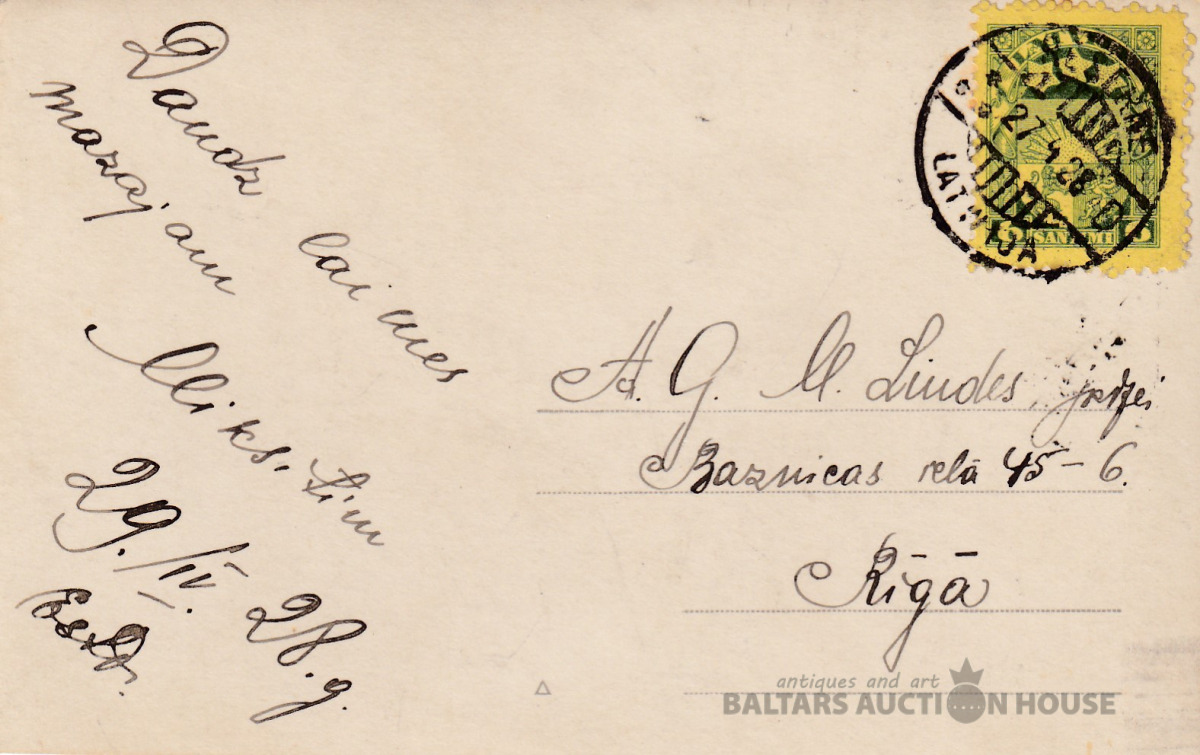 Daudz laimes
mazajam Miks-
tim
29./IV. 28.g.
A. G. M. Lindes
Baznicas ielā 45-6.
Rīgā
27 4 28
LATWIJA
SANTIMI
antiques and art
BALTARS AUCTION HOUSE